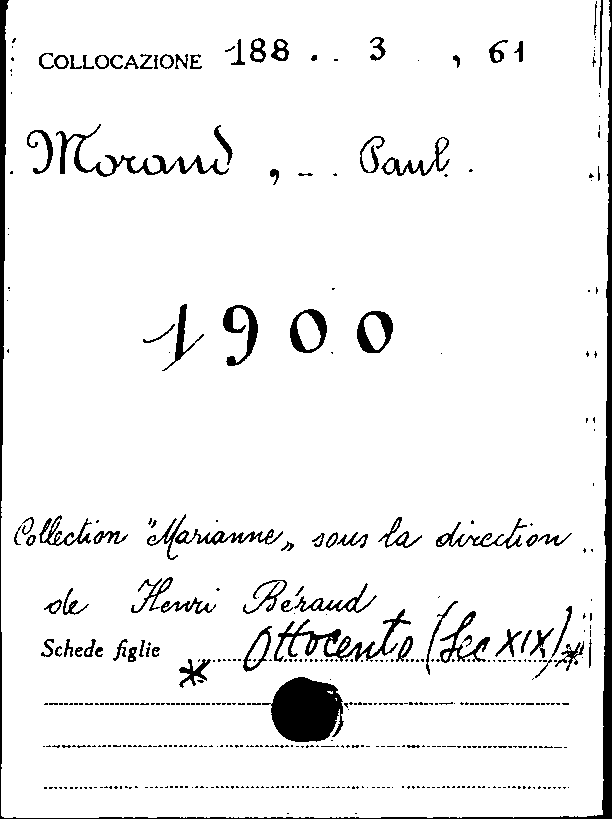 COLLOCAZIONE 188 . . 3 , 61
Morand , - . Paul .
1900
Collection "Marianne„ sous la direction
de Henri Béraud
Schede figlie * Ottocento (Sec XIX) *